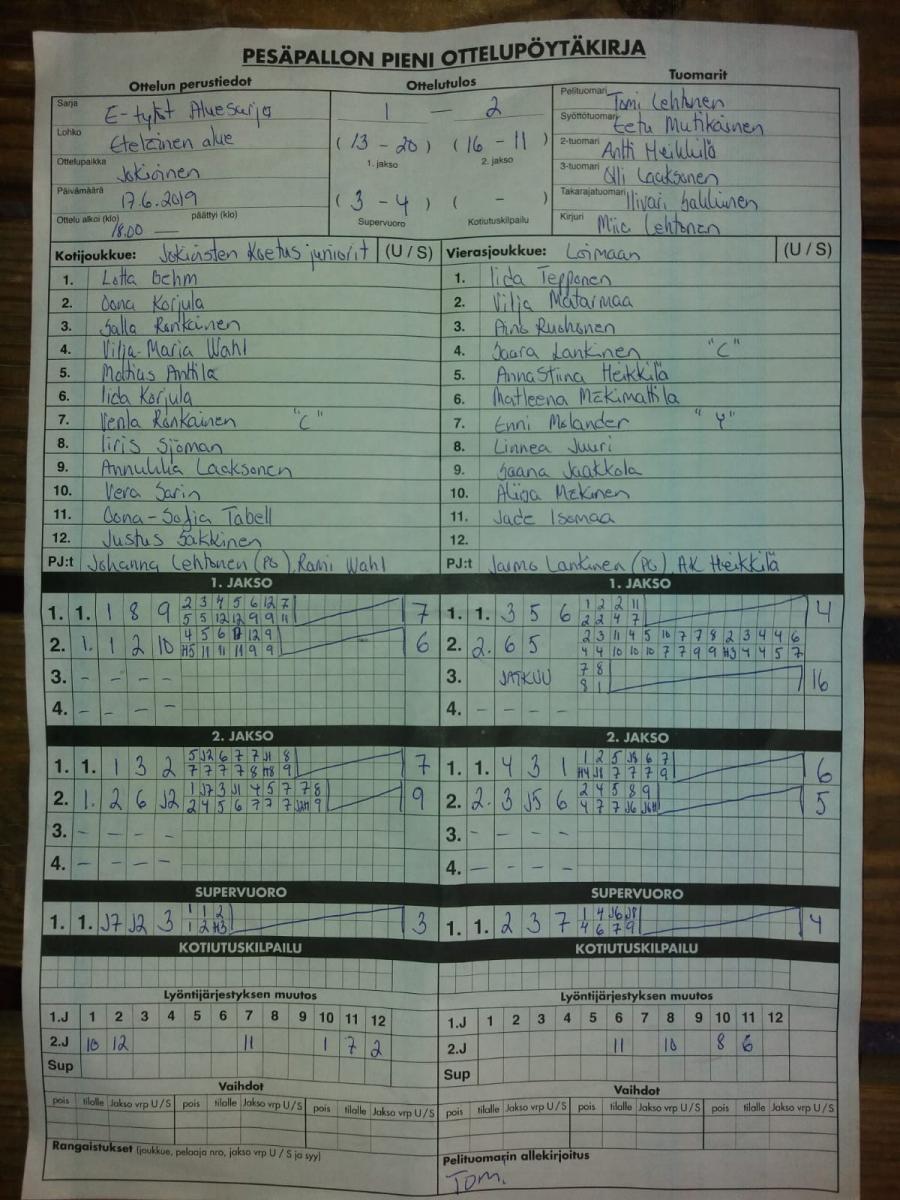 PESÄPALLON PIENI OTTELUPÖYTÄKIRJA
Ottelun perustiedot
Sarja E-tytöt Aluesarja
Lohko Eteläinen alue
Ottelupaikka Jokioinen
Päivämäärä 17.6.2019
Ottelu alkoi (klo) päättyi (klo)
18.00 —
Ottelutulos
1 — 2
( 13 - 20 ) ( 16 - 11 )
1. jakso 2. jakso
( 3 - 4 ) ( - )
Supervuoro Kotiutuskilpailu
Tuomarit
Pelituomari Tomi Lehtonen
Syöttötuomari Eetu Mutikainen
2-tuomari Antti Heikkilä
3-tuomari Olli Laaksonen
Takarajatuomari Iivari
Kirjuri Miia Lehtonen
Kotijoukkue: Jokioisten Koetus juniorit (U / S)
1. Lotta Behm
2. Oona Korjula
3. Salla Ronkainen
4. Vilja-Maria Wahl
5. Matius Antila
6. Iida Korjula
7. Venla Ronkainen "C"
8. Iiris Sjöman
9. Laaksonen
10. Vera Sarin
11. Oona-Sofia Tabell
12. Justus Sakkinen
PJ:t Johanna Lehtonen (PG), Rami Wahl
Vierasjoukkue: Loimaan (U / S)
1. Iida Tepponen
2. Vilja Matarmaa
3. Aino Ruohonen
4. Saara Lankinen "C"
5. AnnaStiina Heikkilä
6. Matleena Mäkimattila
7. Enni Molander "Y"
8. Linnea Juuri
9. Saana Jaakkola
10. Aliisa Mäkinen
11. Jade Isomaa
12.
PJ:t Jarmo Lankinen (PG), AK Heikkilä
1. JAKSO
1. 1. 1 8 9 2 3 4 5 6 12 7 7
5 5 12 12 9 9 11
2. 1. 1 2 10 4 5 6 12 9 6
H5 11 11 11 9 9
3. - - - -
4. - - - -
1. JAKSO
1. 1. 3 5 6 1 2 2 11 4
2 2 4 7
2. 2. 6 5 2 3 11 4 5 10 7 7 8 2 3 4 4 6
4 4 10 10 10 7 7 9 9 H3 4 4 5 7
3. JATKUU 7 8 16
8 1
4. - - - -
2. JAKSO
1. 1. 1 3 2 5 J2 6 7 7 J1 8 7
7 7 7 7 8 H8 9
2. 1. 2 6 J2 1 J7 3 J1 4 5 7 7 8 9
2 4 5 6 7 7 7 9
3. - - - -
4. - - - -
2. JAKSO
1. 1. 4 3 1 1 2 5 J8 6 7 6
H4 J8 7 7 7 9
2. 2. 3 J5 6 2 4 5 8 9 5
4 7 7 J6
3. - - - -
4. - - - -
SUPERVUORO
1. 1. J7 J2 3 1 1 2 3
1 2 H3
SUPERVUORO
1. 1. 2 3 7 1 4 J6 J8 4
4 6 7 9
KOTIUTUSKILPAILU
KOTIUTUSKILPAILU
Lyöntijärjestyksen muutos
1.J 1 2 3 4 5 6 7 8 9 10 11 12
2.J 10 12 11 1 7 2
Sup
Lyöntijärjestyksen muutos
1.J 1 2 3 4 5 6 7 8 9 10 11 12
2.J 11 10 8 6
Sup
Vaihdot
pois tilalle Jakso vrp U / S pois tilalle Jakso vrp U / S pois tilalle Jakso vrp U / S
Vaihdot
pois tilalle Jakso vrp U / S pois tilalle Jakso vrp U / S pois tilalle Jakso vrp U / S
Rangaistukset (joukkue, pelaaja nro, jakso vrp U / S ja syy)
Pelituomarin allekirjoitus
Tomi